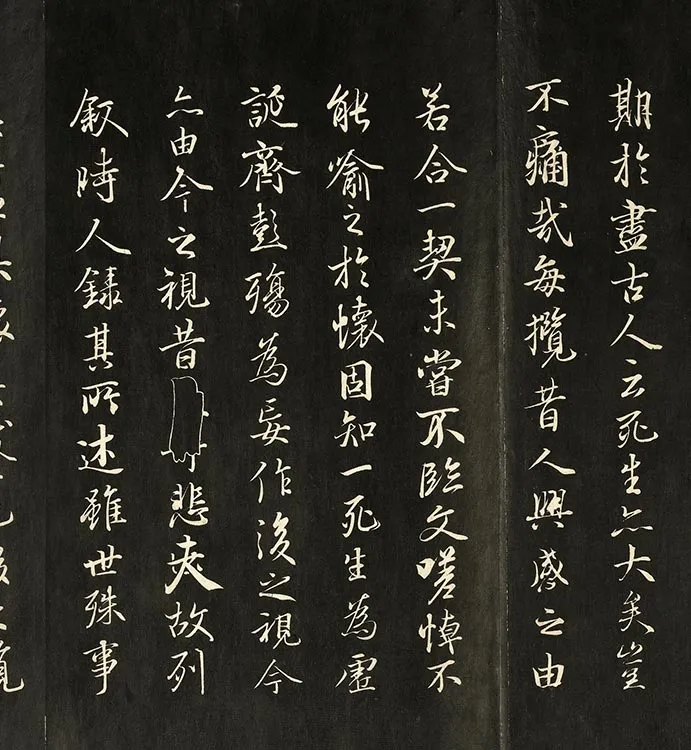 期於盡古人云死生亦大矣豈
不痛哉每攬昔人興感之由
若合一契未嘗不臨文嗟悼不
能喻之於懷固知一死生為虛
誕齊彭殤為妄作後之視今
亦由今之視昔悲夫故列
叙時人錄其所述雖世殊事